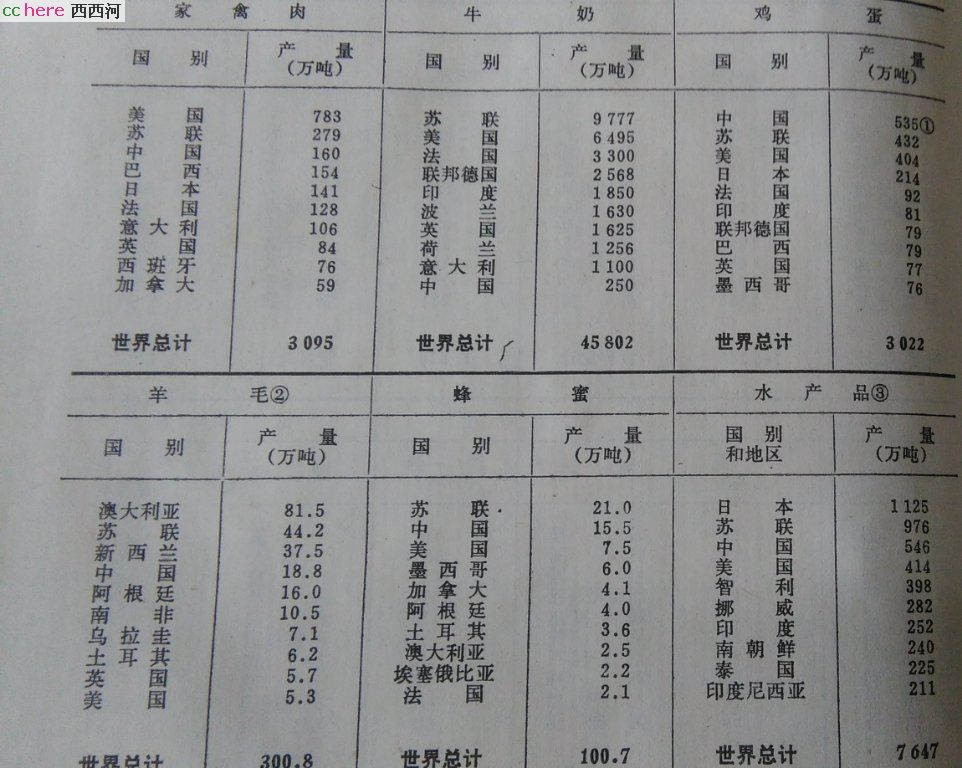 cchere 西西河
家禽肉 牛奶 鸡蛋
国别 产量(万吨) 国别 产量(万吨) 国别 产量(万吨)
美国 783 苏联 9777 中国 535①
苏联 279 美国 6495 苏联 432
中国 160 法国 3300 美国 404
巴西 154 联邦德国 2568 日本 214
日本 141 印度 1850 法国 92
法国 128 波兰 1630 印度 81
意大利 106 英国 1625 联邦德国 79
英国 84 荷兰 1256 巴西 79
西班牙 76 意大利 1100 英国 77
加拿大 59 中国 250 墨西哥 76
世界总计 3095 世界总计 45802 世界总计 3022
羊毛② 蜂蜜 水产品③
国别 产量(万吨) 国别 产量(万吨) 国别和地区 产量(万吨)
澳大利亚 81.5 苏联 21.0 日本 1125
苏联 44.2 中国 15.5 苏联 976
新西兰 37.5 美国 7.5 中国 546
中国 18.8 墨西哥 6.0 美国 414
阿根廷 16.0 加拿大 4.1 智利 398
南非 10.5 阿根廷 4.0 挪威 282
乌拉圭 7.1 土耳其 3.6 印度 252
土耳其 6.2 澳大利亚 2.5 南朝鲜 240
英国 5.7 埃塞俄比亚 2.2 泰国 225
美国 5.3 法国 2.1 印度尼西亚 211
世界总计 300.8 世界总计 100.7 世界总计 7647